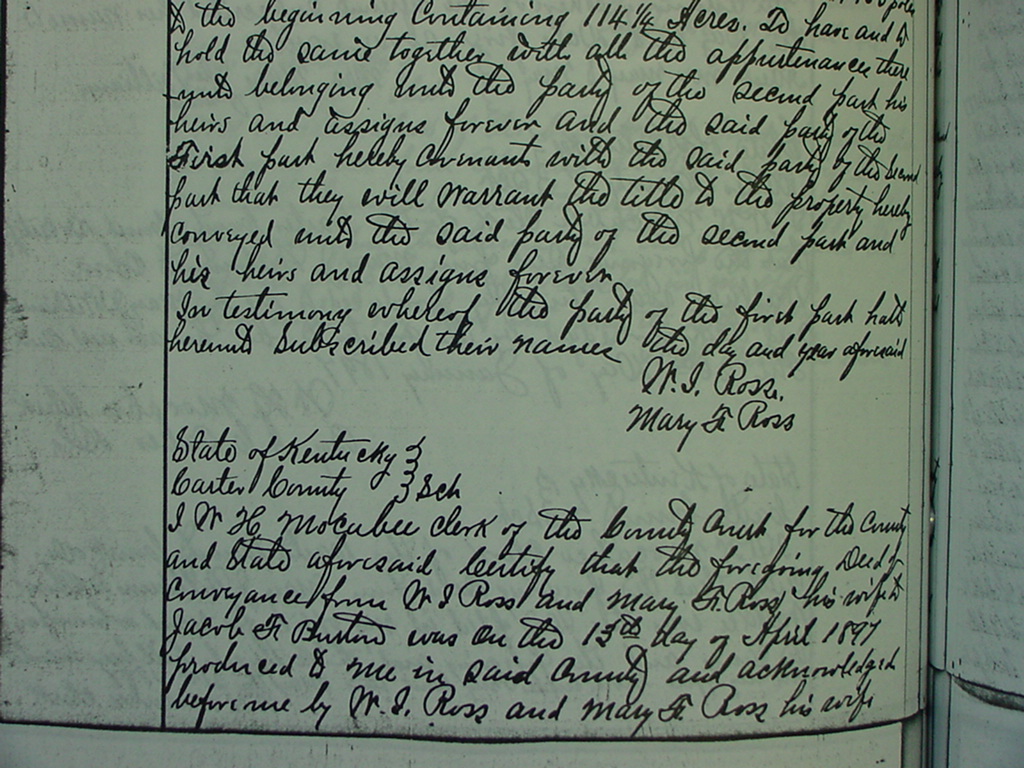 to the beginning Containing 114 1/4 Acres. To have and to
hold the same together with all the appurtenances there
unto belonging unto the party of the second part his
heirs and assigns forever and the said party of the
First part hereby Covenants with the said party of the Second
part that they will warrant the title to the property hereby
conveyed unto the said party of the second part and
his heirs and assigns forever
In testimony whereof the party of the first part hath
hereunto Subscribed their names the day and year aforesaid
W. I. Ross.
Mary F. Ross
State of Kentucky }
Carter County } Sch
I W H McCubee clerk of the County Court for the County
and State aforesaid Certify that the foregoing Deed of
Conveyance from W I Ross and Mary F. Ross his wife to
Jacob F. was on the 13th day of April 1897
produced to me in said County and acknowledged
before me by W. I. Ross and Mary F. Ross his wife